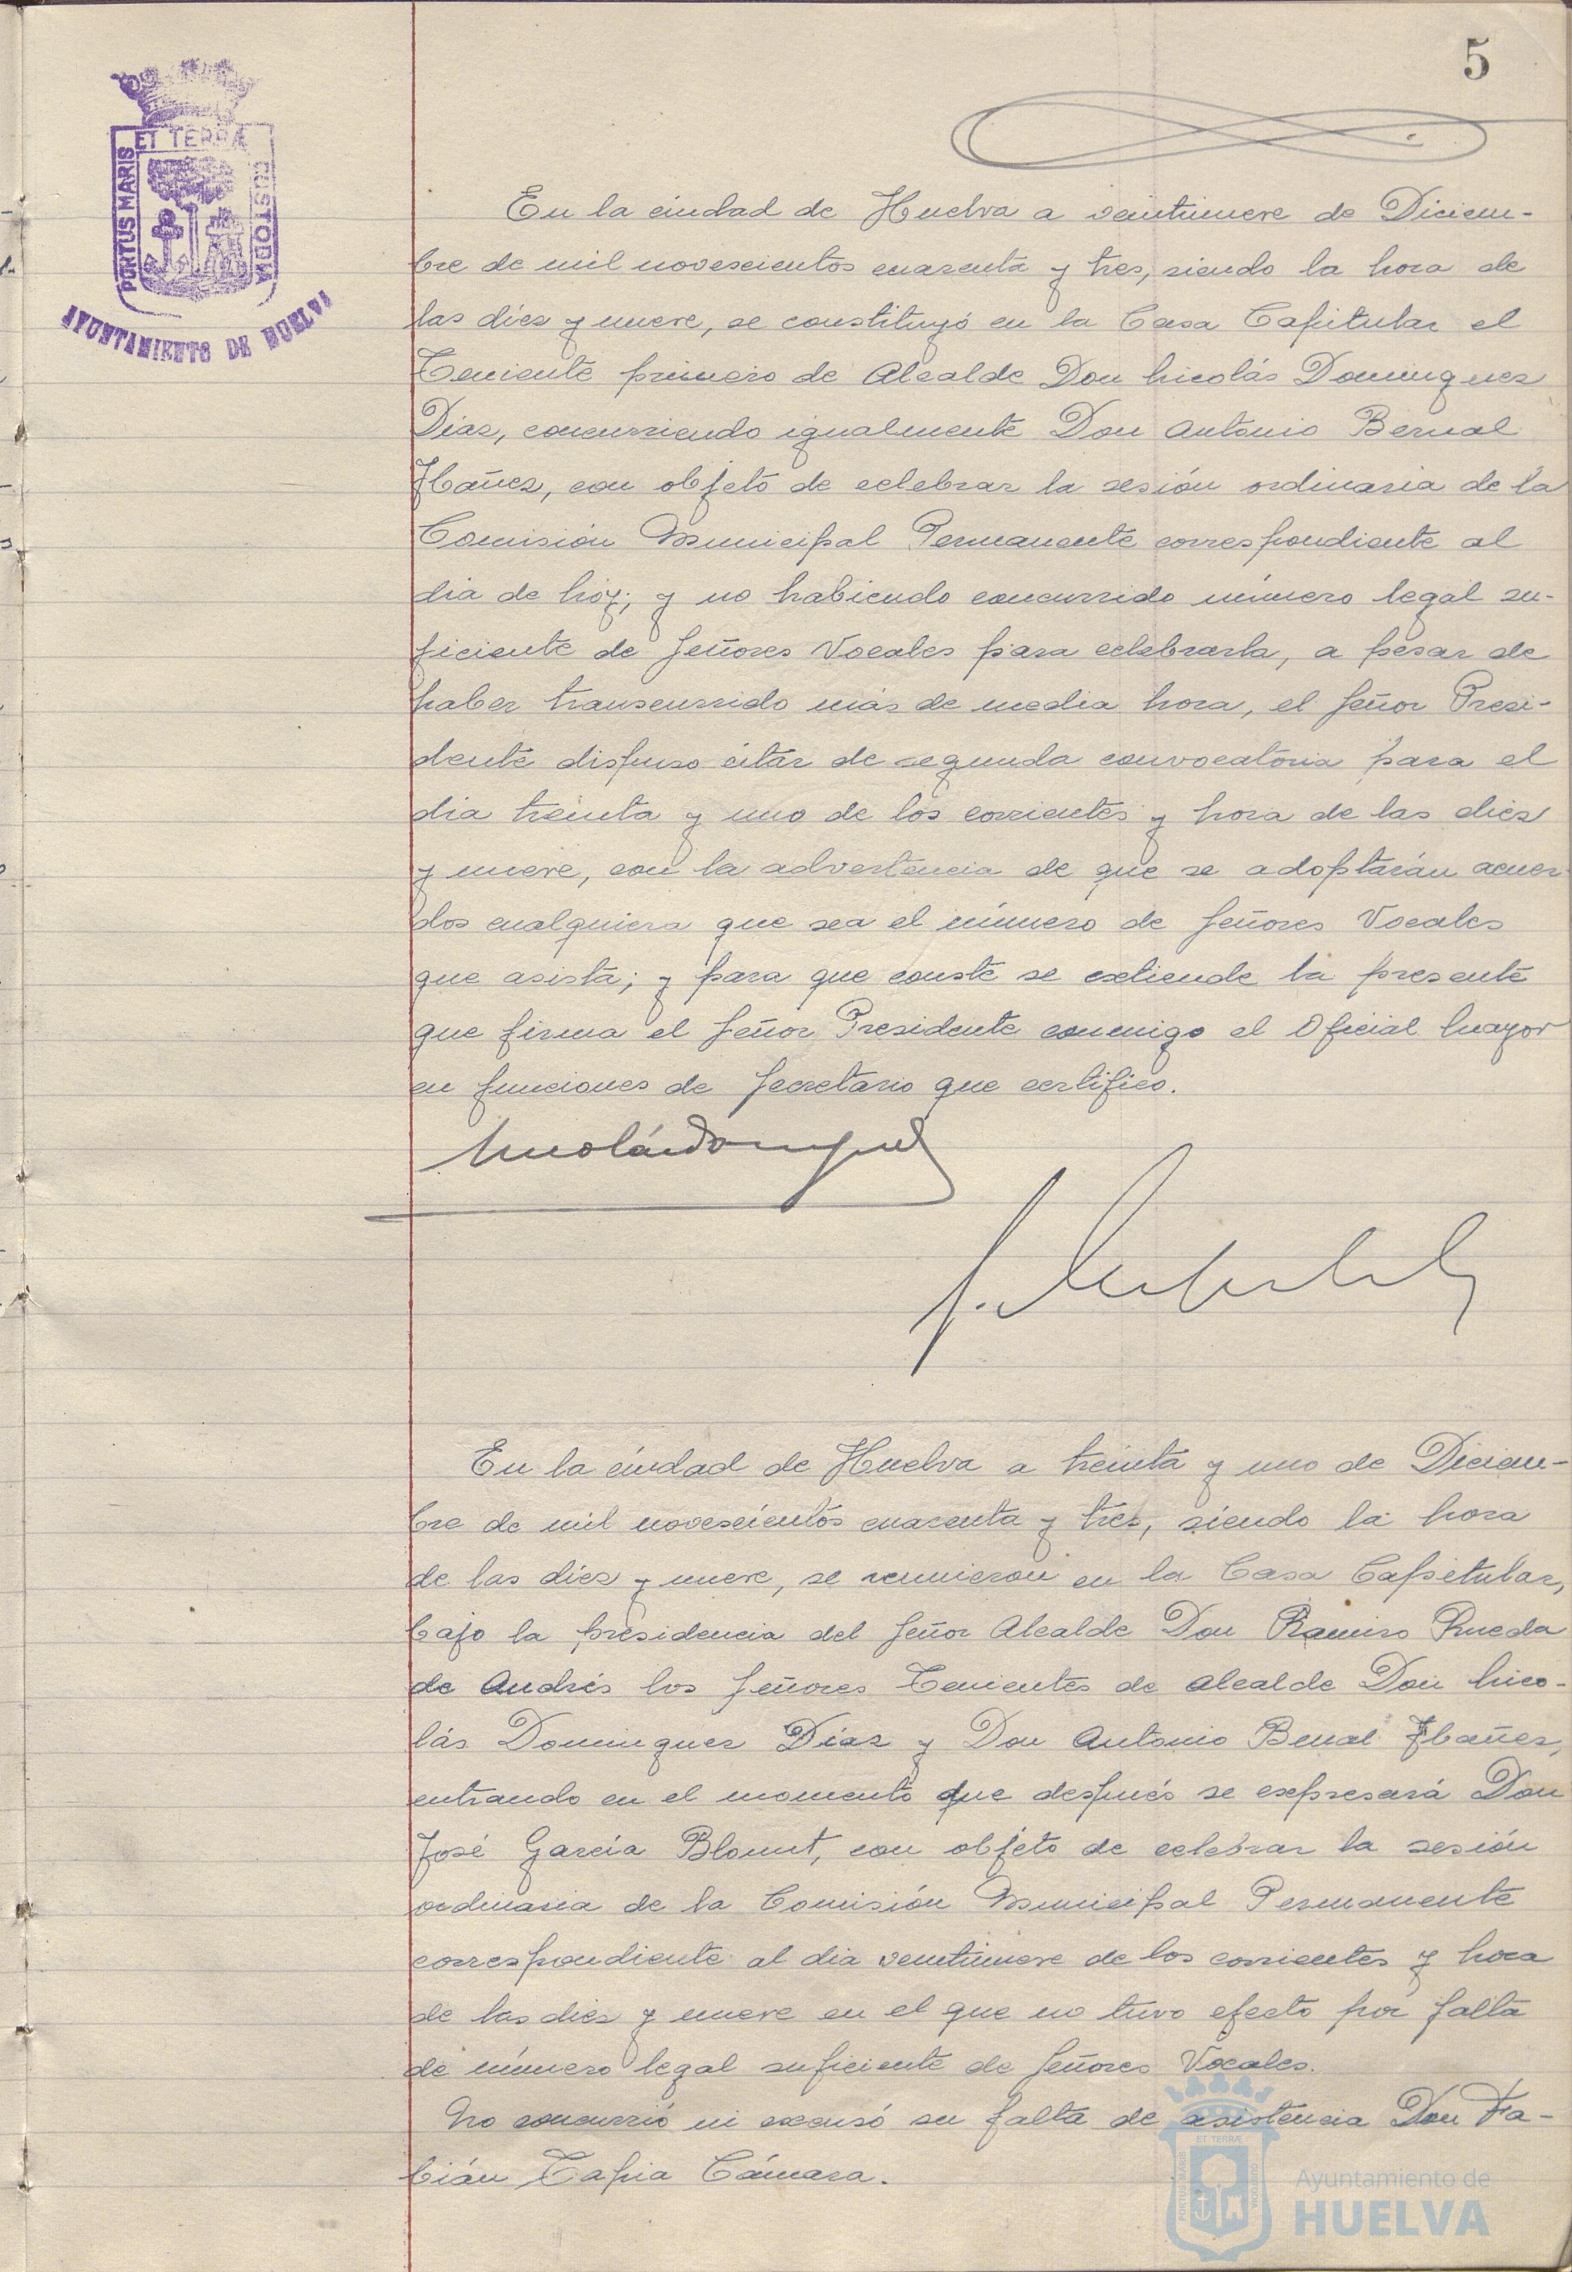 5
ET TERRÆ
PORTUS MARIS
CUSTODIA
AYUNTAMIENTO DE HUELVA
En la ciudad de Huelva a veintinueve de Diciem-
bre de mil novescientos cuarenta y tres, siendo la hora de
las diez y nueve, se constituyó en la Casa Capitular el
Teniente primero de Alcalde Don Nicolás Dominguez
Diaz, concurriendo igualmente Don Antonio Bernal
Ibañez, con objeto de celebrar la sesión ordinaria de la
Comisión Municipal Permanente correspondiente al
dia de hoy; y no habiendo concurrido número legal su-
ficiente de Señores Vocales para celebrarla, a pesar de
haber transcurrido más de media hora, el Señor Presi-
dente dispuso citar de segunda convocatoria para el
dia treinta y uno de los corrientes y hora de las diez
y nueve, con la advertencia de que se adoptarán acuer-
dos cualquiera que sea el número de Señores Vocales
que asista; y para que conste se extiende la presente
que firma el Señor Presidente conmigo el Oficial Mayor
en funciones de Secretario que certifico.
Nicolás Dominguez
En la ciudad de Huelva a treinta y uno de Diciem-
bre de mil novescientos cuarenta y tres, siendo la hora
de las diez y nueve, se reunieron en la Casa Capitular,
bajo la presidencia del Señor Alcalde Don Ramiro Rueda
de Andrés los Señores Tenientes de Alcalde Don Nico-
lás Dominguez Díaz y Don Antonio Benal Ibañez,
entrando en el momento que después se expresará Don
José García Blount, con objeto de celebrar la sesión
ordinaria de la Comisión Municipal Permanente
correspondiente al dia veintinueve de los corrientes y hora
de las diez y nueve en el que no tuvo efecto por falta
de número legal suficiente de Señores Vocales.
No concurrió ni excusó su falta de asistencia Don Fa-
bián Tapia Cámara.
ET TERRÆ
PORTUS MARIS
CUSTODIA
Ayuntamiento de
HUELVA